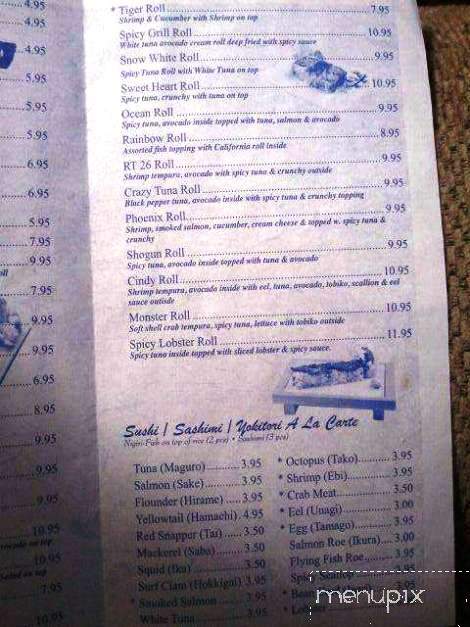 4.95
4.95
4.95
5.95
5.95
5.95
6.95
6.95
5.95
7.95
9.95
roll
7.95
9.95
9.95
6.95
8.95
9.95
9.95
9.95
10.95
10.95
7.95
10.95
* Tiger Roll 7.95
Shrimp & Cucumber with Shrimp on top
Spicy Grill Roll 10.95
White tuna avocado cream roll deep fried with spicy sauce
Snow White Roll 9.95
Spicy Tuna Roll with White Tuna on top
Sweet Heart Roll 10.95
Spicy tuna, crunchy with tuna on top
Ocean Roll 9.95
Spicy tuna, avocado inside topped with tuna, salmon & avocado
Rainbow Roll 8.95
Assorted fish topping with California roll inside
RT 26 Roll 9.95
Shrimp tempura, avocado with spicy tuna & crunchy outside
Crazy Tuna Roll 9.95
Black pepper tuna, avocado inside with spicy tuna & crunchy topping
Phoenix Roll 9.95
Shrimp, smoked salmon, cucumber, cream cheese & topped w. spicy tuna &
crunchy
Shogun Roll 9.95
Spicy tuna, avocado inside topped with tuna & avocado
Cindy Roll 10.95
Shrimp tempura, avocado inside with eel, tuna, avocado, tobiko, scallion & eel
sauce outisde
Monster Roll 10.95
Soft shell crab tempura, spicy tuna, lettuce with tobiko outside
Spicy Lobster Roll 11.95
Spicy tuna inside topped with sliced lobster & spicy sauce.
Sushi / Sashimi / Yokitori A La Carte
Nigiri-Fish on top of rice (2 pcs) • Sashimi (3 pcs)
Tuna (Maguro) 3.95
Salmon (Sake) 3.95
Flounder (Hirame) 3.95
Yellowtail (Hamachi) 4.95
Red Snappur (Tai) 3.50
Mackerel (Saba) 3.50
Squid (Ika) 3.50
Surf Clam (Hokkigai) 3.95
* Smoked Salmon 3.95
White Tuna 3.95
* Octopus (Tako) 3.95
* Shrimp (Ebi) 3.95
* Crab Meat 3.50
* Eel (Unagi) 3.00
* Egg (Tamago) 3.95
Salmon Roe (Ikura) 3.00
Flying Fish Roe 3.95
Spicy Scallop
* Lobster
menupix